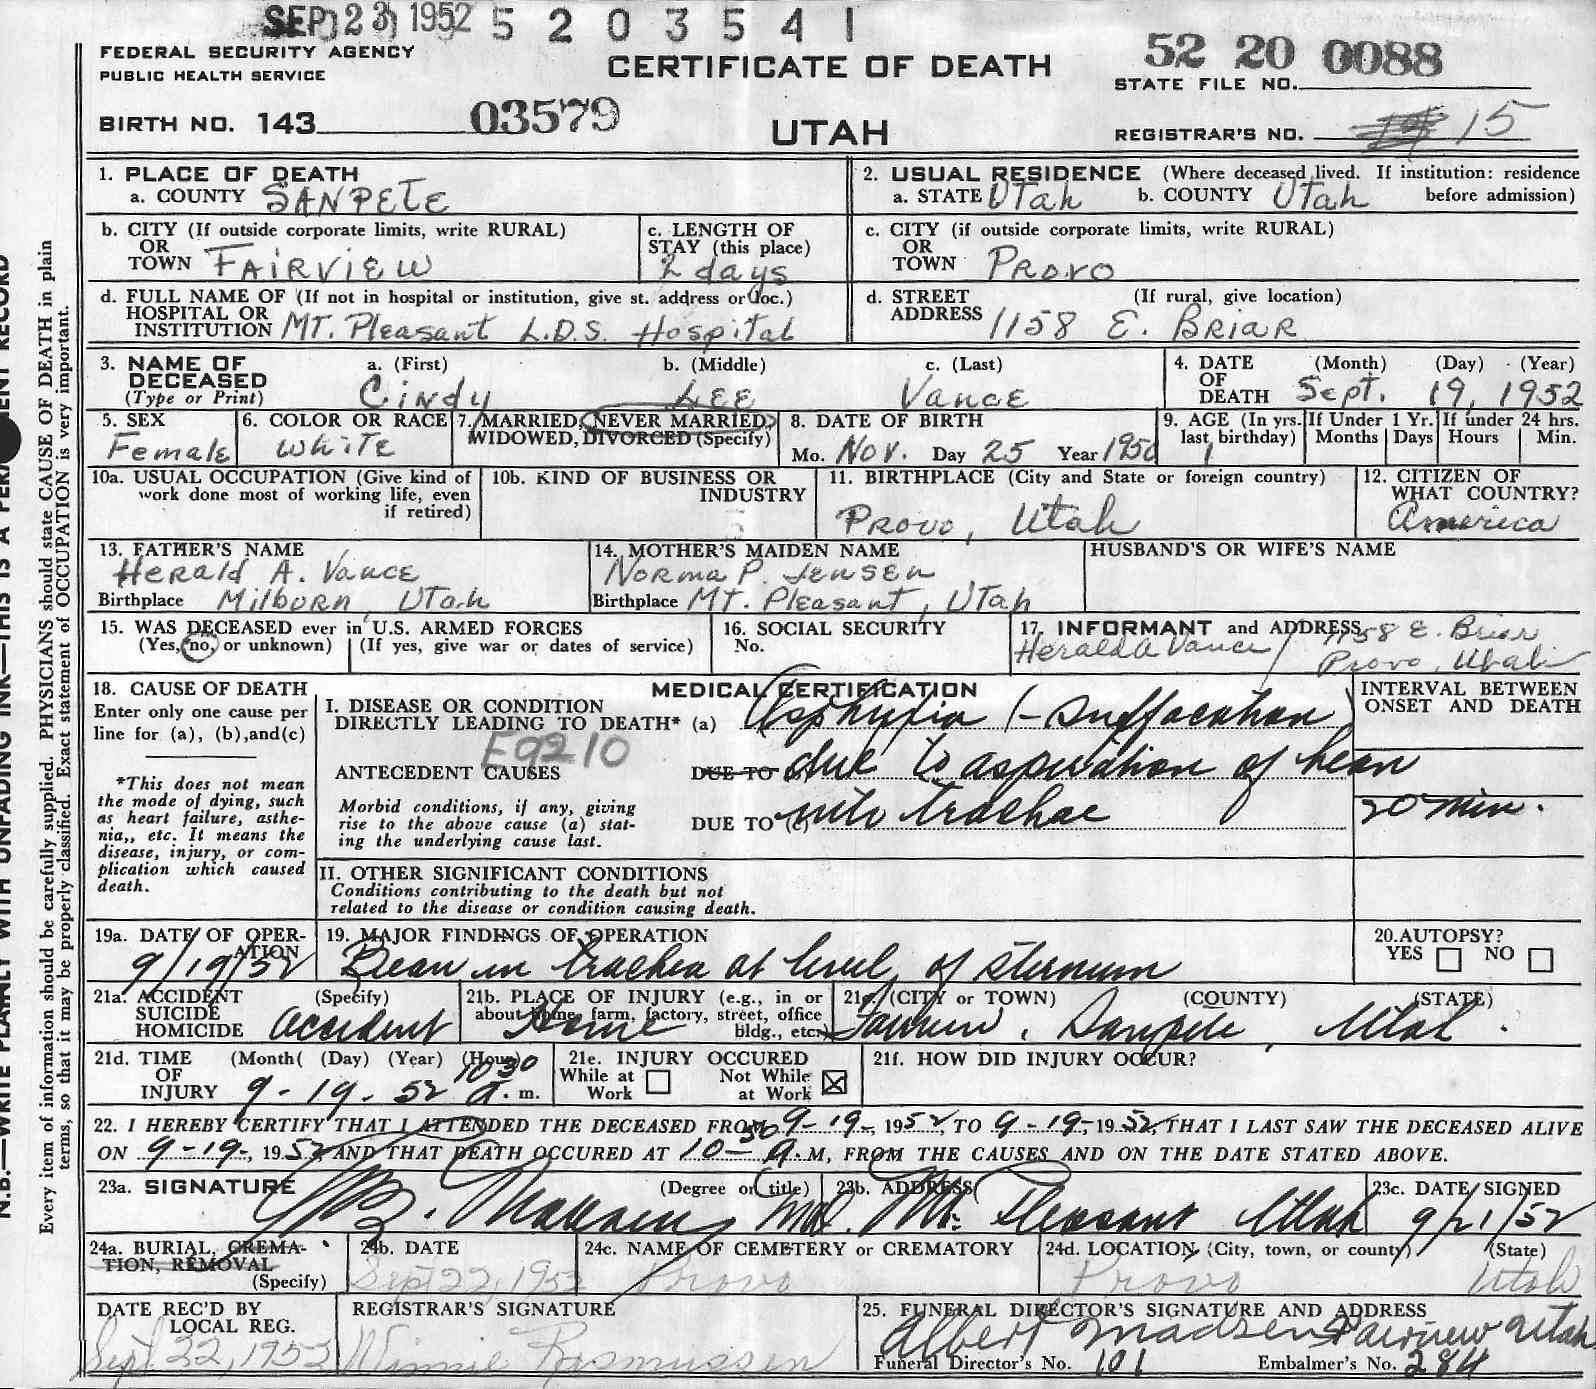 SEP 23 1952 5 2 0 3 5 4 1
FEDERAL SECURITY AGENCY
PUBLIC HEALTH SERVICE
CERTIFICATE OF DEATH
52 20 0088
STATE FILE NO.
BIRTH NO. 143 03579
UTAH
REGISTRAR'S NO. 15
1. PLACE OF DEATH
a. COUNTY SANPETE
2. USUAL RESIDENCE (Where deceased lived. If institution: residence before admission)
a. STATE Utah b. COUNTY Utah
b. CITY (If outside corporate limits, write RURAL) OR TOWN FAIRVIEW
c. LENGTH OF STAY (this place) 2 days
c. CITY (if outside corporate limits, write RURAL) OR TOWN PROVO
d. FULL NAME OF (If not in hospital or institution, give st. address or loc.)
HOSPITAL OR INSTITUTION MT. Pleasant L.D.S. Hospital
d. STREET ADDRESS (If rural, give location) 1158 E. BRIAR
3. NAME OF DECEASED (Type or Print)
a. (First) Cindy b. (Middle) LEE c. (Last) Vance
4. DATE OF DEATH (Month) (Day) (Year) Sept. 19, 1952
5. SEX Female
6. COLOR OR RACE White
7. MARRIED, NEVER MARRIED, WIDOWED, DIVORCED (Specify)
8. DATE OF BIRTH Mo. Nov. Day 25 Year 1950
9. AGE (In yrs. last birthday) 1
If Under 1 Yr. Months Days
If under 24 hrs. Hours Min.
10a. USUAL OCCUPATION (Give kind of work done most of working life, even if retired)
10b. KIND OF BUSINESS OR INDUSTRY
11. BIRTHPLACE (City and State or foreign country) PROVO, Utah
12. CITIZEN OF WHAT COUNTRY? America
13. FATHER'S NAME Herald A. Vance
Birthplace Milborn, Utah
14. MOTHER'S MAIDEN NAME Norma P. Jensen
Birthplace MT. Pleasant, Utah
HUSBAND'S OR WIFE'S NAME
15. WAS DECEASED ever in U.S. ARMED FORCES
(Yes, no, or unknown) (If yes, give war or dates of service)
16. SOCIAL SECURITY No.
17. INFORMANT and ADDRESS
Herald A Vance / 1158 E. Briar
Provo, Utah
18. CAUSE OF DEATH
Enter only one cause per line for (a), (b),and(c)
*This does not mean the mode of dying, such as heart failure, asthenia,, etc. It means the disease, injury, or complication which caused death.
MEDICAL CERTIFICATION
I. DISEASE OR CONDITION
DIRECTLY LEADING TO DEATH* (a) Asphyxia (-suffocation
E9210
ANTECEDENT CAUSES
DUE TO due to aspiration of bean
Morbid conditions, if any, giving rise to the above cause (a) stating the underlying cause last.
DUE TO (c) into trachae
INTERVAL BETWEEN ONSET AND DEATH
20 min.
II. OTHER SIGNIFICANT CONDITIONS
Conditions contributing to the death but not related to the disease or condition causing death.
19a. DATE OF OPERATION 9/19/52
19. MAJOR FINDINGS OF OPERATION
Bean in trachea at level of sternum
20.AUTOPSY? YES NO
21a. ACCIDENT SUICIDE HOMICIDE (Specify) accident
21b. PLACE OF INJURY (e.g., in or about home, farm, factory, street, office bldg., etc.) Home
21c. (CITY or TOWN) (COUNTY) (STATE)
Fairview, Sanpete, Utah.
21d. TIME OF INJURY (Month( (Day) (Year) (Hour) 9-19-52 10 30 a.m.
21e. INJURY OCCURED While at Work Not While at Work
21f. HOW DID INJURY OCCUR?
22. I HEREBY CERTIFY THAT I ATTENDED THE DECEASED FROM 9-19-, 1952, TO 9-19-, 1952, THAT I LAST SAW THE DECEASED ALIVE
ON 9-19-, 1952, AND THAT DEATH OCCURED AT 10-50 A.M, FROM THE CAUSES AND ON THE DATE STATED ABOVE.
23a. SIGNATURE (Degree or title) Madsen, Md.
23b. ADDRESS Mt. Pleasant Utah
23c. DATE SIGNED 9/21/52
24a. BURIAL, CREMATION, REMOVAL (Specify)
24b. DATE Sept 22, 1952
24c. NAME OF CEMETERY or CREMATORY Provo
24d. LOCATION (City, town, or county) (State) Provo Utah
DATE REC'D BY LOCAL REG. Sept 22, 1952
REGISTRAR'S SIGNATURE Winnie Rasmussen
25. FUNERAL DIRECTOR'S SIGNATURE AND ADDRESS
Albert Madsen Fairview Utah
Funeral Director's No. 101 Embalmer's No. 284
Every item of information should be carefully supplied. PHYSICIANS should state CAUSE OF DEATH in plain
terms, so that it may be properly classified. Exact statement of OCCUPATION is very important.
N.B.—WRITE PLAINLY WITH UNFADING INK—THIS IS A PERMANENT RECORD